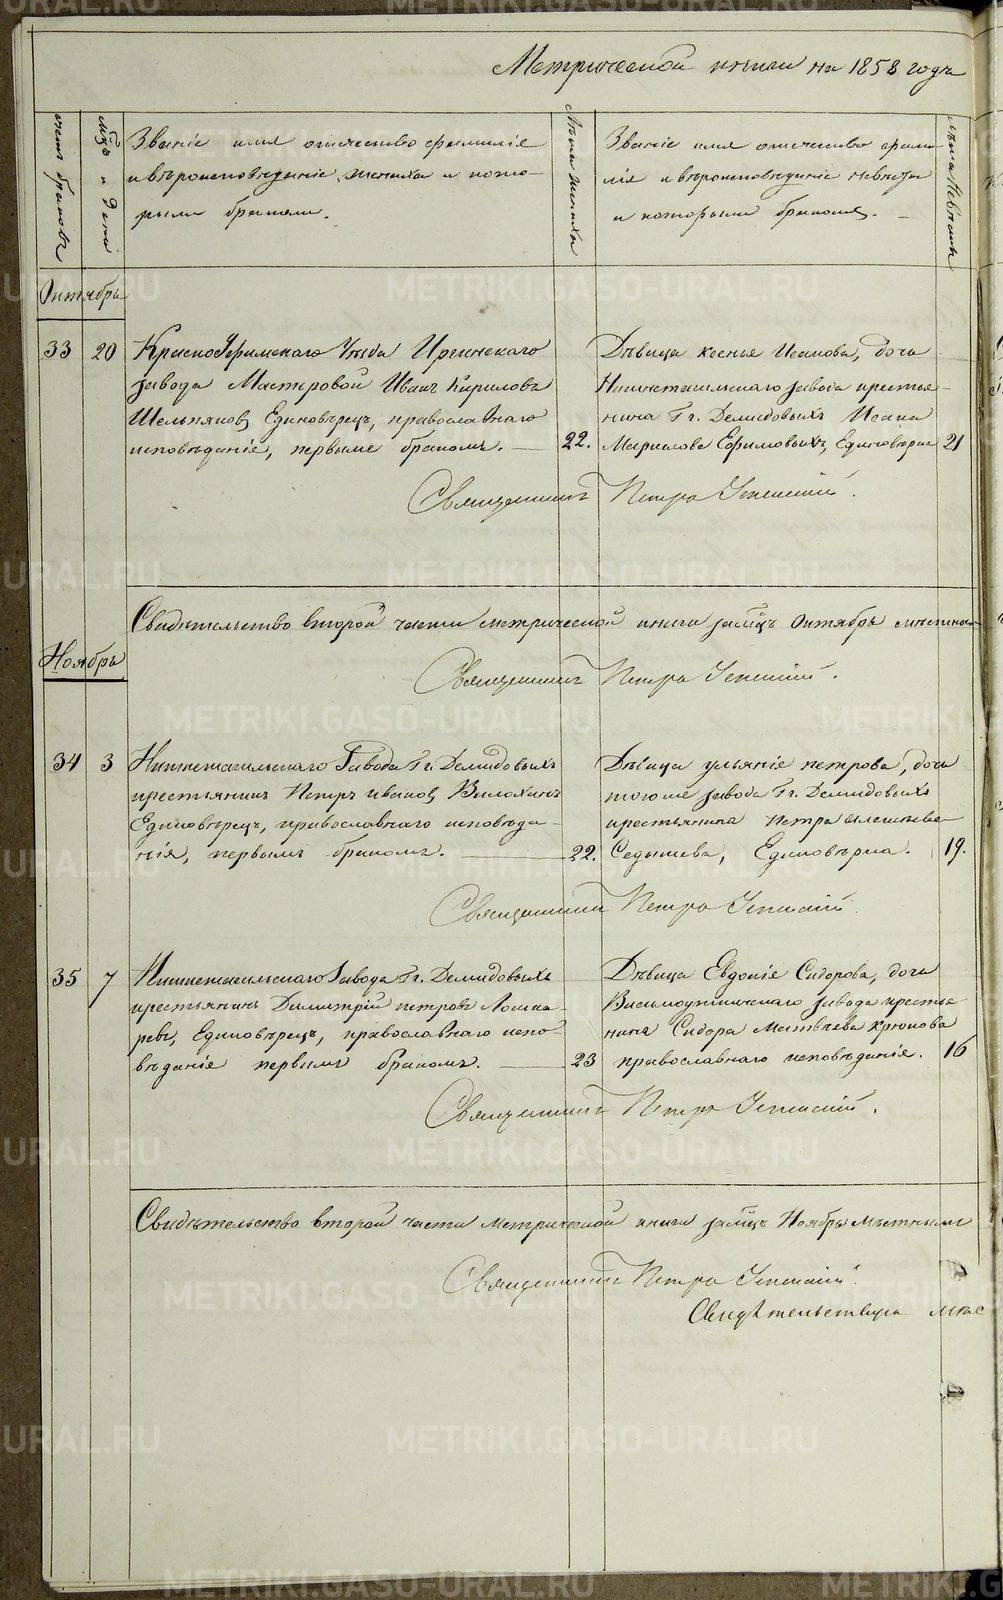 Метрической книги на 1858 годъ
счетъ браковъ
Мцъ и день
Званіе имя отечество фамиліе
и вѣроисповѣданіе жениха и кото-
рымъ бракомъ.
Лѣта жениха
Званіе имя отечество фами-
лія и вѣроисповѣданіе невѣсты
и которымъ бракомъ.
лѣта Невѣсты
Октябрь
33 20 КрасноУфимскаго Уѣзда Иргинскаго
завода Мастеровой Иванъ Кириловъ
Шельпяковъ Единовѣрецъ, православнаго
исповѣданіе, первымъ бракомъ. 22.
Дѣвица Ксенье Исакова, дочь
Нижнетагильскаго завода крестья-
нина Гг. Демидовыхъ Исака
Ефимовыхъ, Единовѣрка 21
Священникъ Петръ Успенскій.
Свидѣтельство второй части метрической книги за мцъ Октябрь
Священникъ Петръ Успенскій.
Ноябрь
34 3 Нижнетагильскаго Завода Гг. Демидовыхъ
крестьянинъ Петръ Ивановъ Вилохинъ
Единовѣрецъ, православнаго исповѣда-
нія, первымъ бракомъ. 22.
Дѣвица ульяніе петрова, дочь
тогоже завода Гг. Демидовыхъ
крестьянина Петра алексѣева
Седышева, Единовѣрка. 19.
Священникъ Петръ Успенскій
35 7 Нижнетагильскаго Завода Гг. Демидовыхъ
крестьянинъ Димитрій петровъ Лошка-
ревъ, Единовѣрецъ, православнаго испо-
вѣданіе первымъ бракомъ. 23
Дѣвица Евдокіе Сидорова, дочь
Висимоуткинскаго завода крестья-
нина Сидора Матвѣева Крюкова
православнаго исповѣданіе. 16
Священникъ Петръ Успенскій.
Свидѣтельство второй части метрической книги за мцъ Ноябрь Мѣстнымъ
Священникъ Петръ Успенскій.
METRIKI.GASO-URAL.RU